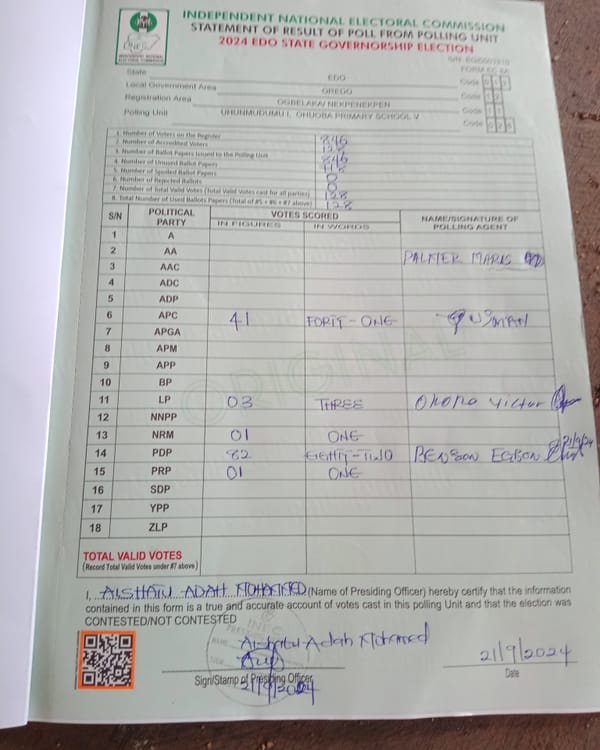 INDEPENDENT NATIONAL ELECTORAL COMMISSION
STATEMENT OF RESULT OF POLL FROM POLLING UNIT
2024 EDO STATE GOVERNORSHIP ELECTION
FORM EC 8A
State EDO Code
Local Government Area OREDO Code
Registration Area OGBELAKA/ NEKPENEKPEN Code
Polling Unit UHUNMUDUMU I, OHUOBA PRIMARY SCHOOL V Code
1. Number of Voters on the Register 846
2. Number of Accredited Voters 128
3. Number of Ballot Papers Issued to the Polling Unit 846
4. Number of Unused Ballot Papers
5. Number of Spoiled Ballot Papers 0
6. Number of Rejected Ballots 0
7. Number of Total Valid Votes (Total Valid Votes cast for all parties) 128
8. Total Number of Used Ballots Papers (Total of #5 + #6 + #7 above) 128
S/N POLITICAL PARTY VOTES SCORED NAME/SIGNATURE OF POLLING AGENT
IN FIGURES IN WORDS
1 A
2 AA PALMER MARIS
3 AAC
4 ADC
5 ADP
6 APC 41 FORTY-ONE USMAN
7 APGA
8 APM
9 APP
10 BP
11 LP 03 THREE Okoro Victor
12 NNPP
13 NRM 01 ONE
14 PDP 82 EIGHTY-TWO BENSON EGBON 21/9/24
15 PRP 01 ONE
16 SDP
17 YPP
18 ZLP
ORIGINAL
TOTAL VALID VOTES
(Record Total Valid Votes under #7 above)
I, AISHATU ADAH MOHAMMED (Name of Presiding Officer) hereby certify that the information
contained in this form is a true and accurate account of votes cast in this polling Unit and that the election was
CONTESTED/NOT CONTESTED
Aishatu Adah Mohamed
21/9/2024
Sign/Stamp of Presiding Officer
21/9/2024
Date